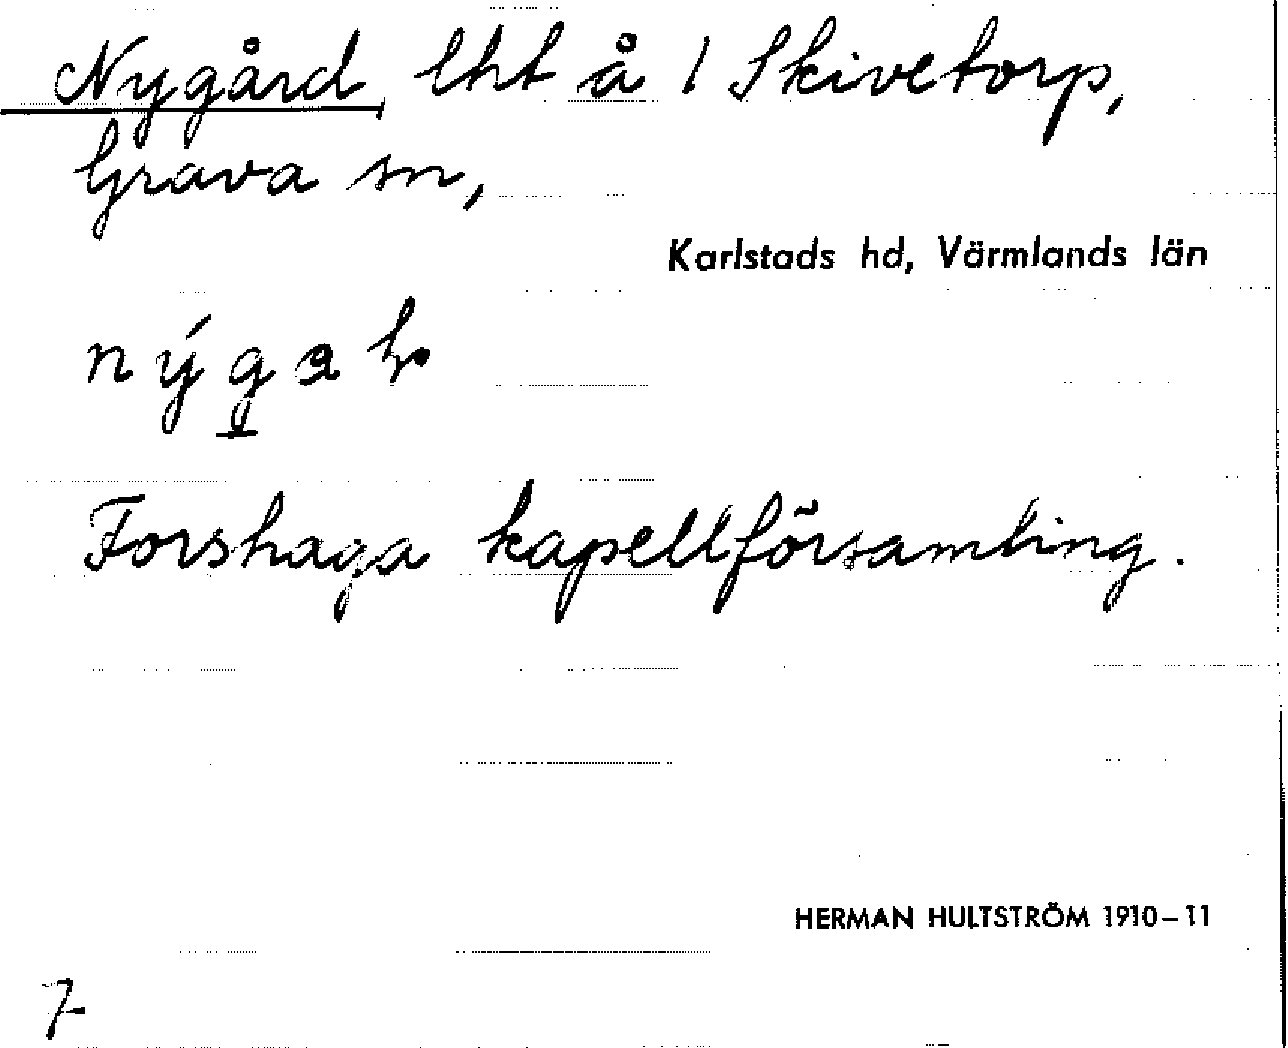 Nygård, lht å 1 Skivetorp,
Grava sn,
Karlstads hd, Värmlands län
Forshaga kapellförsamling.
HERMAN HULTSTRÖM 1910–11
7